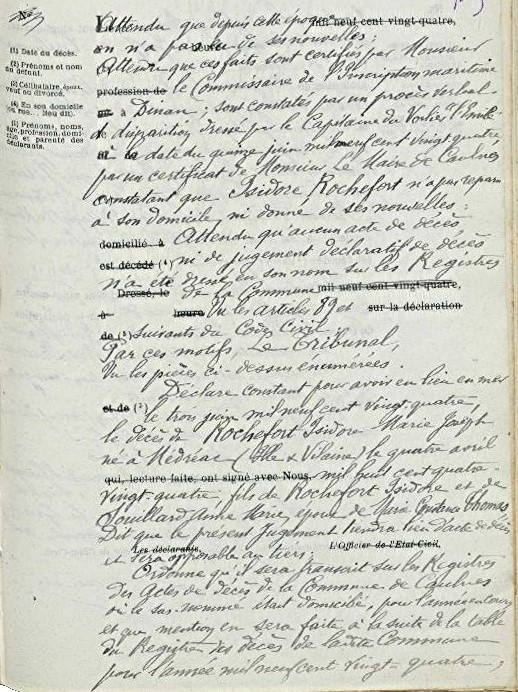 N°
Attendu que depuis cette époque mil neuf cent vingt-quatre,
on n'a pas eu de ses nouvelles ;
(1) Date du décès.
Attendu que ces faits sont certifiés par Monsieur
(2) Prénoms et nom du défunt.
profession de le Commissaire de l'Inscription maritime
(3) Célibataire, époux, veuf ou divorcé.
à Dinan ; sont constatés par un procès verbal
(4) En son domicile ou rue... lieu dit).
de disparition dressé par le Capitaine du Voilier
(5) Prénoms, noms, âge, profession, domicile et parenté des déclarants.
à la date du quinze juin mil neuf cent vingt quatre
par un certificat de Monsieur Le Maire de Caulnes
constatant que Isidore Rochefort n'a pas reparu
à son domicile, ni donné de ses nouvelles :
domicilié à Attendu qu'aucun acte de décès
est décédé (4) ni de jugement déclaratif de décès
n'a été dressé en son nom sur les Registres
Dressé, le de la Commune mil neuf cent vingt-quatre,
à heure Vu les articles 89 et sur la déclaration
de (5) Suivants du Code Civil
Par ces motifs, Le Tribunal,
Vu les pièces ci-dessus énumérées.
Déclare constant pour avoir eu lieu en mer
et de (5) le trois juin mil neuf cent vingt quatre,
le décès de Rochefort Isidore Marie Joseph
né à Médréac (Ille & Vilaine) le quatre avril
qui, lecture faite, ont signé avec Nous, mil huit cent quatre-
vingt-quatre, fils de Rochefort Isidore et de
Jouillard Anne Marie, époux de Marie Thomas
Dit que le présent Jugement tiendra lieu d'acte de décès
Les déclarants, L'Officier de l'Etat-Civil,
et sera opposable aux tiers ;
Ordonne qu'il sera transcrit sur les Registres
des Actes de décès de la Commune de Caulnes
où le sus-nommé était domicilié, pour l'année en cours
et que mention en sera faite à la suite de la table
du Registre des décès de ladite Commune
pour l'année mil neuf cent vingt-quatre ;